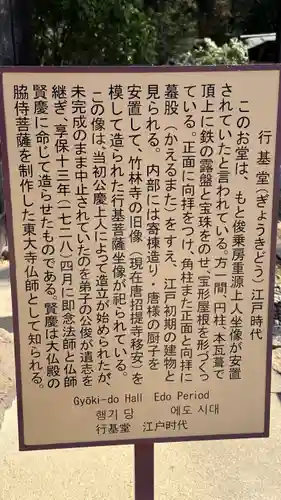 行基堂(ぎょうきどう)江戸時代
このお堂は、もと俊乗房重源上人坐像が安置
されていたと言われている方一間、円柱、本瓦葺で
頂上に鉄の露盤と宝珠をのせ、宝形屋根を形づくっ
ている。正面に向拝をつけ、角柱また正面と向拝に
蟇股(かえるまた)をすえ、江戸初期の建物と
見られる。内部には寄棟造り・唐様の厨子を
安置して、竹林寺の旧像(現在唐招提寺移安)を
模して造られた行基菩薩坐像が祀られている。
この像は、当初公慶上人によって造立が始められたが、
未完成のまま中止されていたのを弟子の公俊が遺志を
継ぎ、享保十三年(一七二八)四月に即念法師と仏師
賢慶に命じて造らせたものである。賢慶は大仏殿の
脇侍菩薩を制作した東大寺仏師として知られる。
Gyōki-do Hall Edo Period
행기 당 에도 시대
行基堂 江户时代